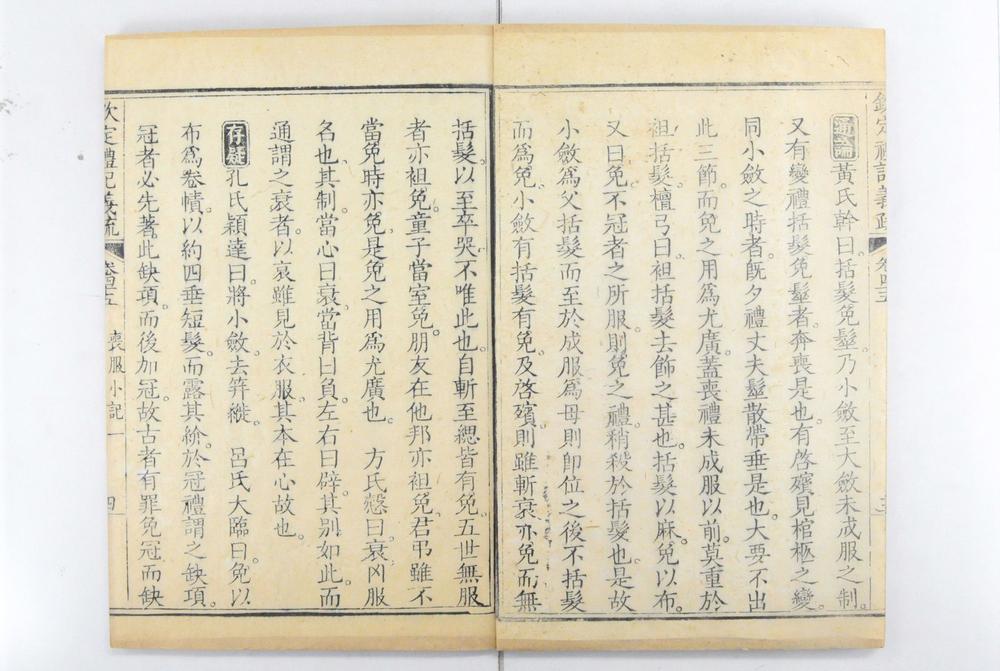 欽定禮記義疏 卷四十五 三
通論 黃氏幹曰。括髮免髽。乃小斂至大斂未成服之制。
又有變禮括髮免髽者。奔喪是也。有啓殯見棺柩之變。
同小斂之時者。旣夕禮丈夫髽散帶垂是也。大要不出
此三節。而免之用爲尤廣。蓋喪禮未成服以前。莫重於
袒括髮。檀弓曰。袒括髮去飾之甚也。括髮以麻。免以布。
又曰。免不冠者之所服。則免之禮。稍殺於括髮也。是故
小斂爲父括髮而至於成服爲母則卽位之後不括髮
而爲免。小斂有括髮有免。及啓殯則雖斬衰亦免而無
括髮。以至卒哭。不唯此也。自斬至緦皆有免。五世無服
者亦袒免。童子當室免。朋友在他邦亦袒免。君弔雖不
當免時亦免。是免之用爲尤廣也。 方氏愨曰。衰凶服
名也。其制。當心曰衰。當背曰負。左右曰辟。其別如此。而
通謂之衰者。以哀雖見於衣服。其本在心故也。
存疑 孔氏穎達曰。將小斂。去笄縰。 呂氏大臨曰。免以
布爲卷幘。以約四垂短髮。而露其紒。於冠禮謂之缺項。
冠者必先著。此缺項。而後加冠。故古者有罪免冠而缺
欽定禮記義疏 卷四十五 喪服小記一 四